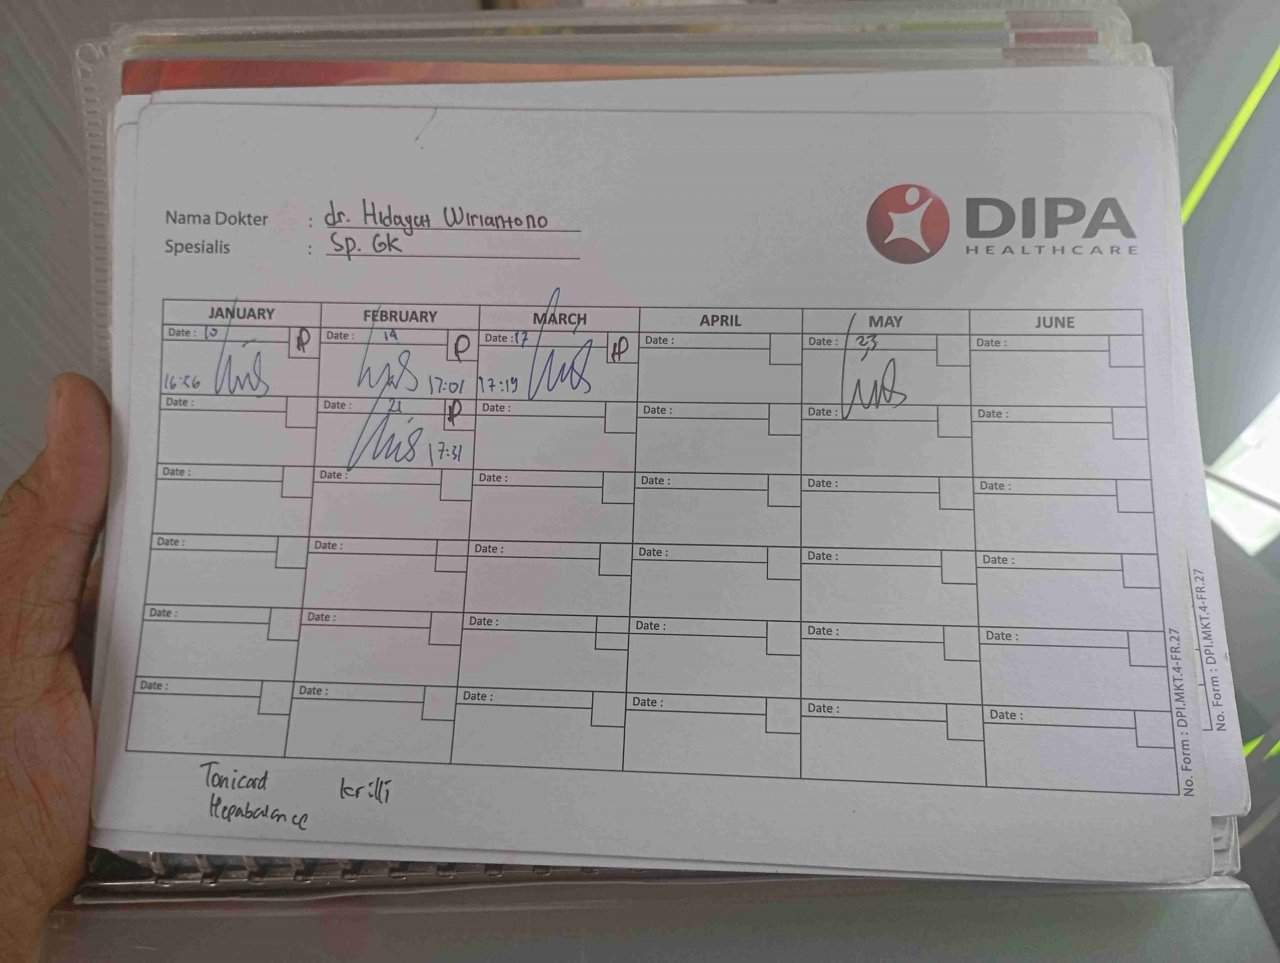 Nama Dokter : dr. Hidayat Wiriantono
Spesialis : Sp. GK
DIPA
HEALTHCARE
JANUARY FEBRUARY MARCH APRIL MAY JUNE
Date : 10 P Date : 19 P Date : 17 P Date : Date : 23 Date :
16:56 17:01 17:19
Date : Date : 21 P Date : Date : Date : Date :
17:31
Date : Date : Date : Date : Date : Date :
Date : Date : Date : Date : Date : Date :
Date : Date : Date : Date : Date : Date :
Date : Date : Date : Date : Date : Date :
Tonicard krilli
Hepabalance
No. Form : DPI.MKT.4-FR.27
No. Form : DPI.MKT.4-FR.27